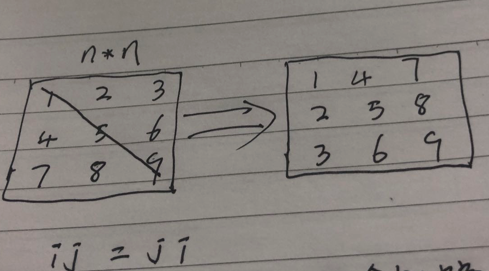 n*n
1 2 3
4 5 6
7 8 9
1 4 7
2 5 8
3 6 9
ij = ji